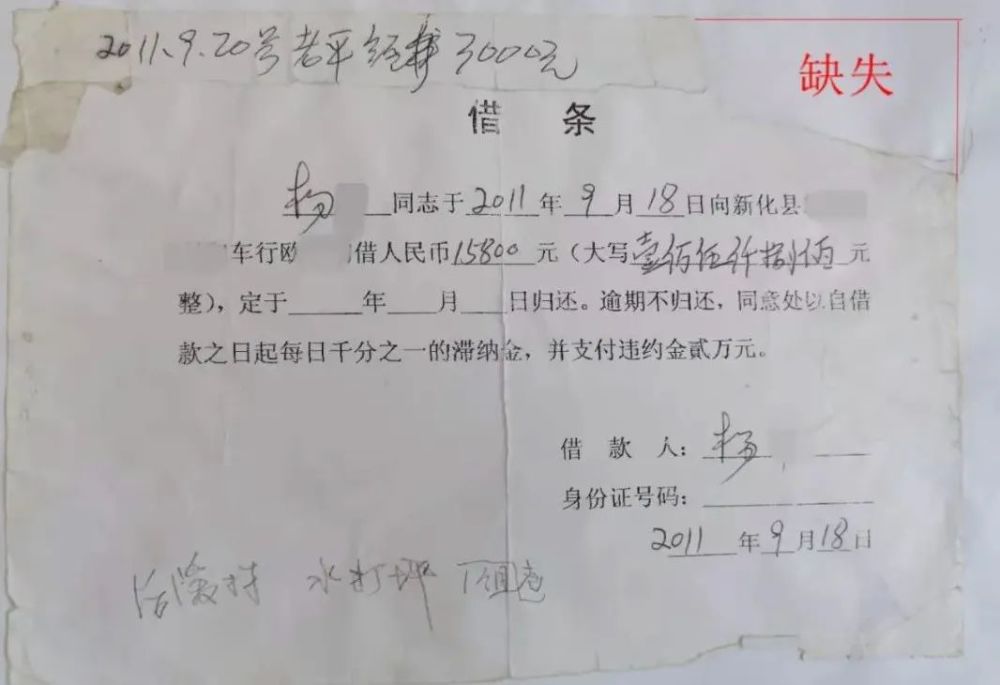 2011、9、20号老平经手3000元
缺失
借 条
杨 同志于2011年9月18日向新化县
车行欧 借人民币15800元（大写壹佰伍仟捌佰元
整），定于 年 月 日归还。逾期不归还，同意处以自借
款之日起每日千分之一的滞纳金，并支付违约金贰万元。
借 款 人：杨
身份证号码：
2011年9月18日
水打坪